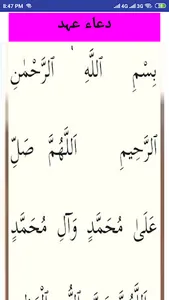 8:47 PM
4G 4G 3G
دعاء عہد
بِسْمِ اللَّهِ ٱلرَّحْمَٰنِ
ٱلرَّحِيمِ ٱللَّهُمَّ صَلِّ
عَلَىٰ مُحَمَّدٍ وَآلِ مُحَمَّدٍ